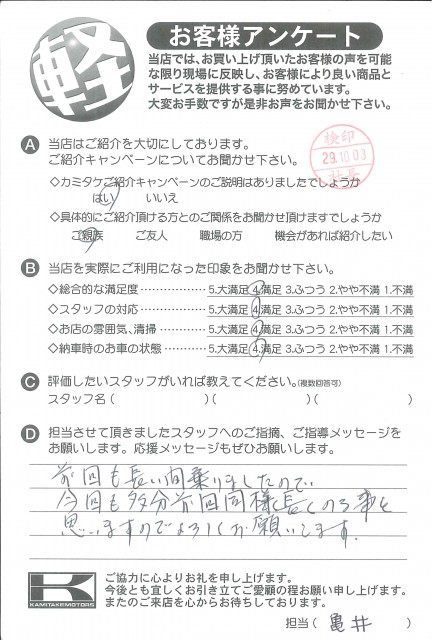 軽
お客様アンケート
当店では、お買い上げ頂いたお客様の声を可能
な限り現場に反映し、お客様により良い商品と
サービスを提供する事に努めています。
大変お手数ですが是非お声をお聞かせ下さい。
A 当店はご紹介を大切にしております。
ご紹介キャンペーンについてお聞かせ下さい。
検印
29.10.03
社長
◇カミタケご紹介キャンペーンのご説明はありましたでしょうか
はい いいえ
◇具体的にご紹介頂ける方とのご関係をお聞かせ頂けますでしょうか
ご親族 ご友人 職場の方 機会があれば紹介したい
B 当店を実際にご利用になった印象をお聞かせ下さい。
◇総合的な満足度 ……………… 5.大満足 4.満足 3.ふつう 2.やや不満 1.不満
◇スタッフの対応 ……………… 5.大満足 4.満足 3.ふつう 2.やや不満 1.不満
◇お店の雰囲気、清掃 ………… 5.大満足 4.満足 3.ふつう 2.やや不満 1.不満
◇納車時のお車の状態 ………… 5.大満足 4.満足 3.ふつう 2.やや不満 1.不満
C 評価したいスタッフがいれば教えてください。(複数回答可)
スタッフ名( )( )( )
D 担当させて頂きましたスタッフへのご指摘、ご指導メッセージを
お願いします。応援メッセージもぜひお願いします。
前回も長い間乗りましたので、
今回も多分前回同様長くのる事と
思いますのでよろしくお願いします。
K
KAMITAKE MOTORS
ご協力に心よりお礼を申し上げます。
今後とも宜しくお引き立てご愛顧の程お願い申し上げます。
またのご来店を心からお待ちしております。
担当( 亀井 )